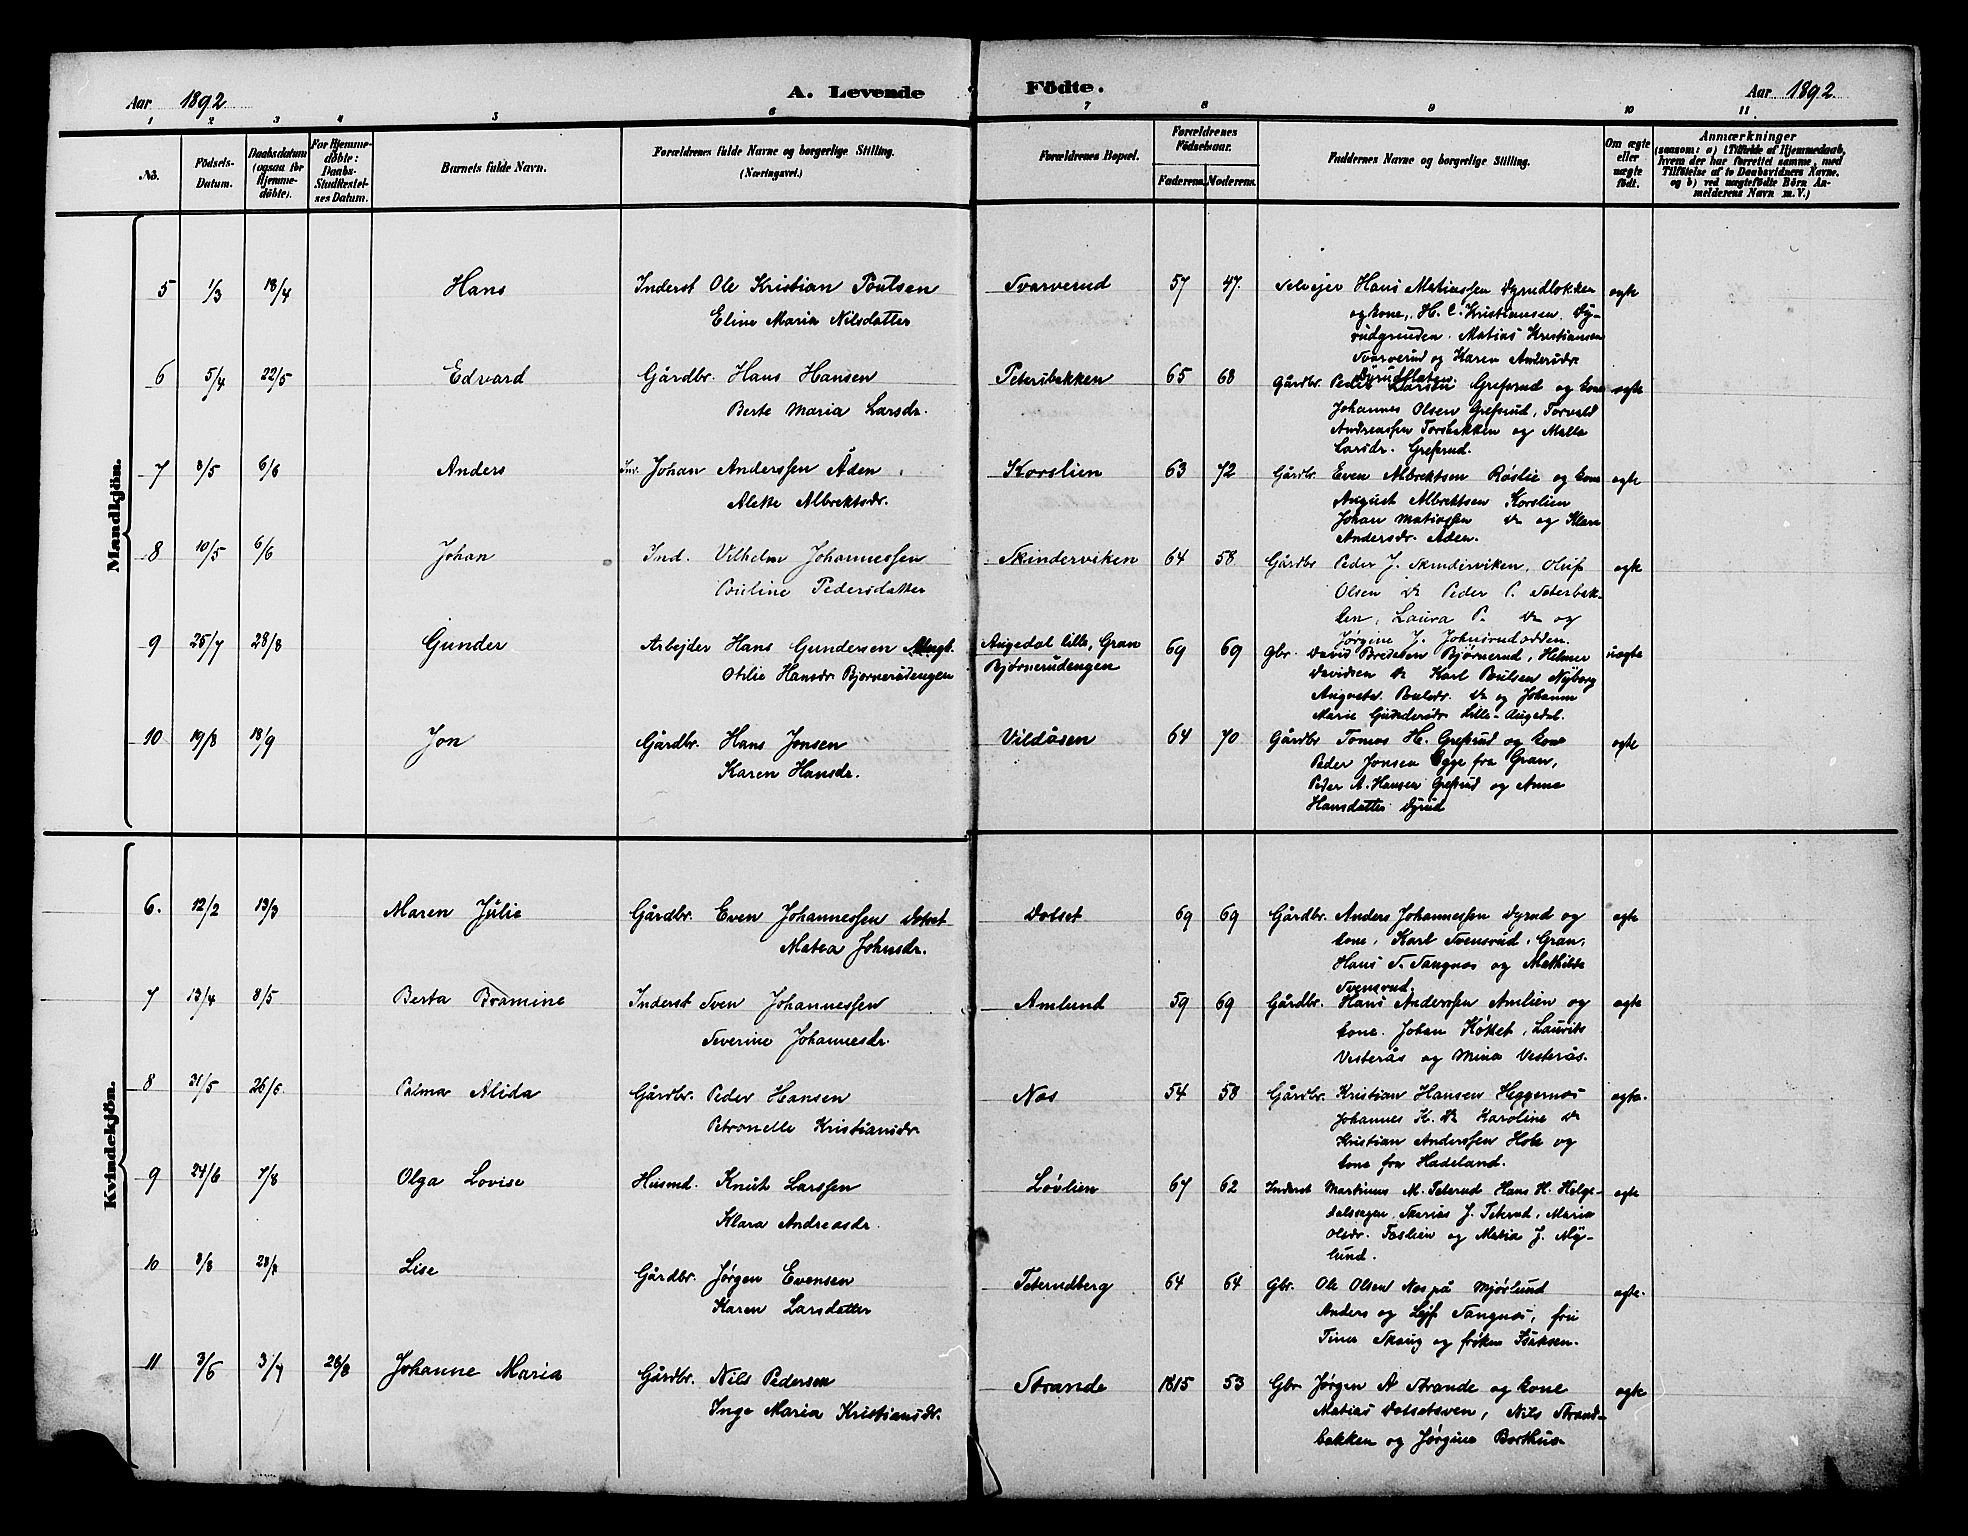 Aar 1892
A. Levende
Födte.
Aar 1892
1 2 3 4 5 6 7 8 9 10 11
No.
Födsels-
Datum.
Daabsdatum
(ogsaa for
Hjemme-
döbte).
For Hjemme-
döbte:
Daabs-
Stadfæstel-
ses Datum.
Barnets fulde Navn.
Forældrenes fulde Navne og borgerlige Stilling.
(Næringsvei.)
Forældrenes Bopæl.
Forældrenes
Födselsaar.
Faderens. Moderens.
Faddernes Navne og borgerlige Stilling.
Om ægte
eller
uægte
født.
Anmærkninger
(saasom: a) i Tilfælde af Hjemmedaab,
hvem der har forrettet samme, med
Tilföielse af to Daabsvidners Navne,
og b) ved uægtefödte Börn An-
melderens Navn m. V.)
Mandkjön.
5 1/3 18/4 Hans Inderst Ole Kristian Poulsen Svarverud 57 47. Selvejer Hans Matiassen Dyrudlokken ægte
Eline Maria Nilsdatter
og kone, H. C. Kristiansen Dy-
rudgrinden. Matias Kristiansen
Svarverud og Karen Andersdr.
Dyrudflaten.
6 5/4 22/5 Edvard Gårdbr. Hans Hansen Petersbakken 65 68 Gårdbr. Peder Larsen Grefsrud og kone ægte
Berte Maria Larsdr.
Johannes Olsen Grefsrud, Torvald
Andreassen Torsbakken og Malla
Larsdr. Grefsrud.
7 3/5 6/6 Anders Ind. Johan Anderssen Åden Korslien 63 72 Gårdbr. Even Albrektsen Røslie og kone ægte
Alette Albrektsdr.
August Albrektsen Korslien
Johan Matiassen do og Klara
Andersdr. Aden.
8 10/5 6/6 Johan Ind. Vilhelm Johannessen Skinderviken 64 58 Gårdbr Peder J. Skinderviken, Oluf ægte
Pauline Pedersdatter
Olsen do Peder P. Seterbak-
ken, Laura P. do og
Jørgine J. Johnsrudodden.
9 25/7 28/8 Gunder Arbejder Hans Gundersen Augedal lille, Gran 69 69 Gbr. David Bredesen Bjørnerud, Helmer uægte
Otilie Hansdr. Bjørnerudengen Bjørnerudengen
Davidsen do Karl Poulsen Nyborg
Augusta Poulsdr. do og Johanna
Marie Gundersdr. Lille-Augedal.
10 19/8 18/9 Jon Gårdbr. Hans Jonsen Vildåsen 64 70 Gårdbr Tomas H. Grefsrud og kone ægte
Karen Hansdr.
Peder Jonsen Egge fra Gran,
Peder A. Hansen Grefsrud og Anne
Hansdatter Dyrud
Kvindekjön.
6. 12/2 13/3 Maren Julie Gårdbr. Even Johannessen Dotset Dotset 69 69 Gårdbr. Anders Johannessen Dyrud og ægte
Matea Johnsdr.
kone, Karl Svensrud, Gran,
Hans S. Sangnæs og Mathilde
Svensrud.
7 13/4 8/5 Berta Bramine Inderst Sven Johannessen Amlund 59 69 Gårdbr. Hans Anderssen Amlien og ægte
Severine Johannesdr.
kone. Johan Køket, Laurits
Vesterås og Mina Vesterås.
8 31/5 26/6 Palma Alida Gårdbr. Peder Hansen Næs 54 58 Gårdbr. Kristian Hansen Heggernæs ægte.
Petronelle Kristiansdr.
Johannes K. do Karoline do
Kristian Anderssen Hole og
kone fra Hadeland.
9 24/6 7/8 Olga Lovise Husmd. Knut Larssen Løvlien 67 62 Inderst Martinus M. Teterud Hans H. Helge- ægte
Klara Andreasdr.
dalshagen, Maria
Olsdr. Faslien og Matia J. My-
lund.
10 3/8 28/8 Lise Gårdbr. Jørgen Evensen Teterudberg 64 64 Gbr. Ole Olsen Næs på Mjørlund ægte.
Karen Larsdatter
Anders og Lejf Sangnæs, fru
Tina Skaug og frøken Isaksen.
11 3/6 3/7 28/8 Johanne Maria Gårdbr. Nils Pedersen Strande 1815 53 Gbr Jørgen A Strande og kone ægte
Inge Maria Kristiansdr.
Matias Dotsetsven, Nils Strand-
bakken og Jørgine Borthus.